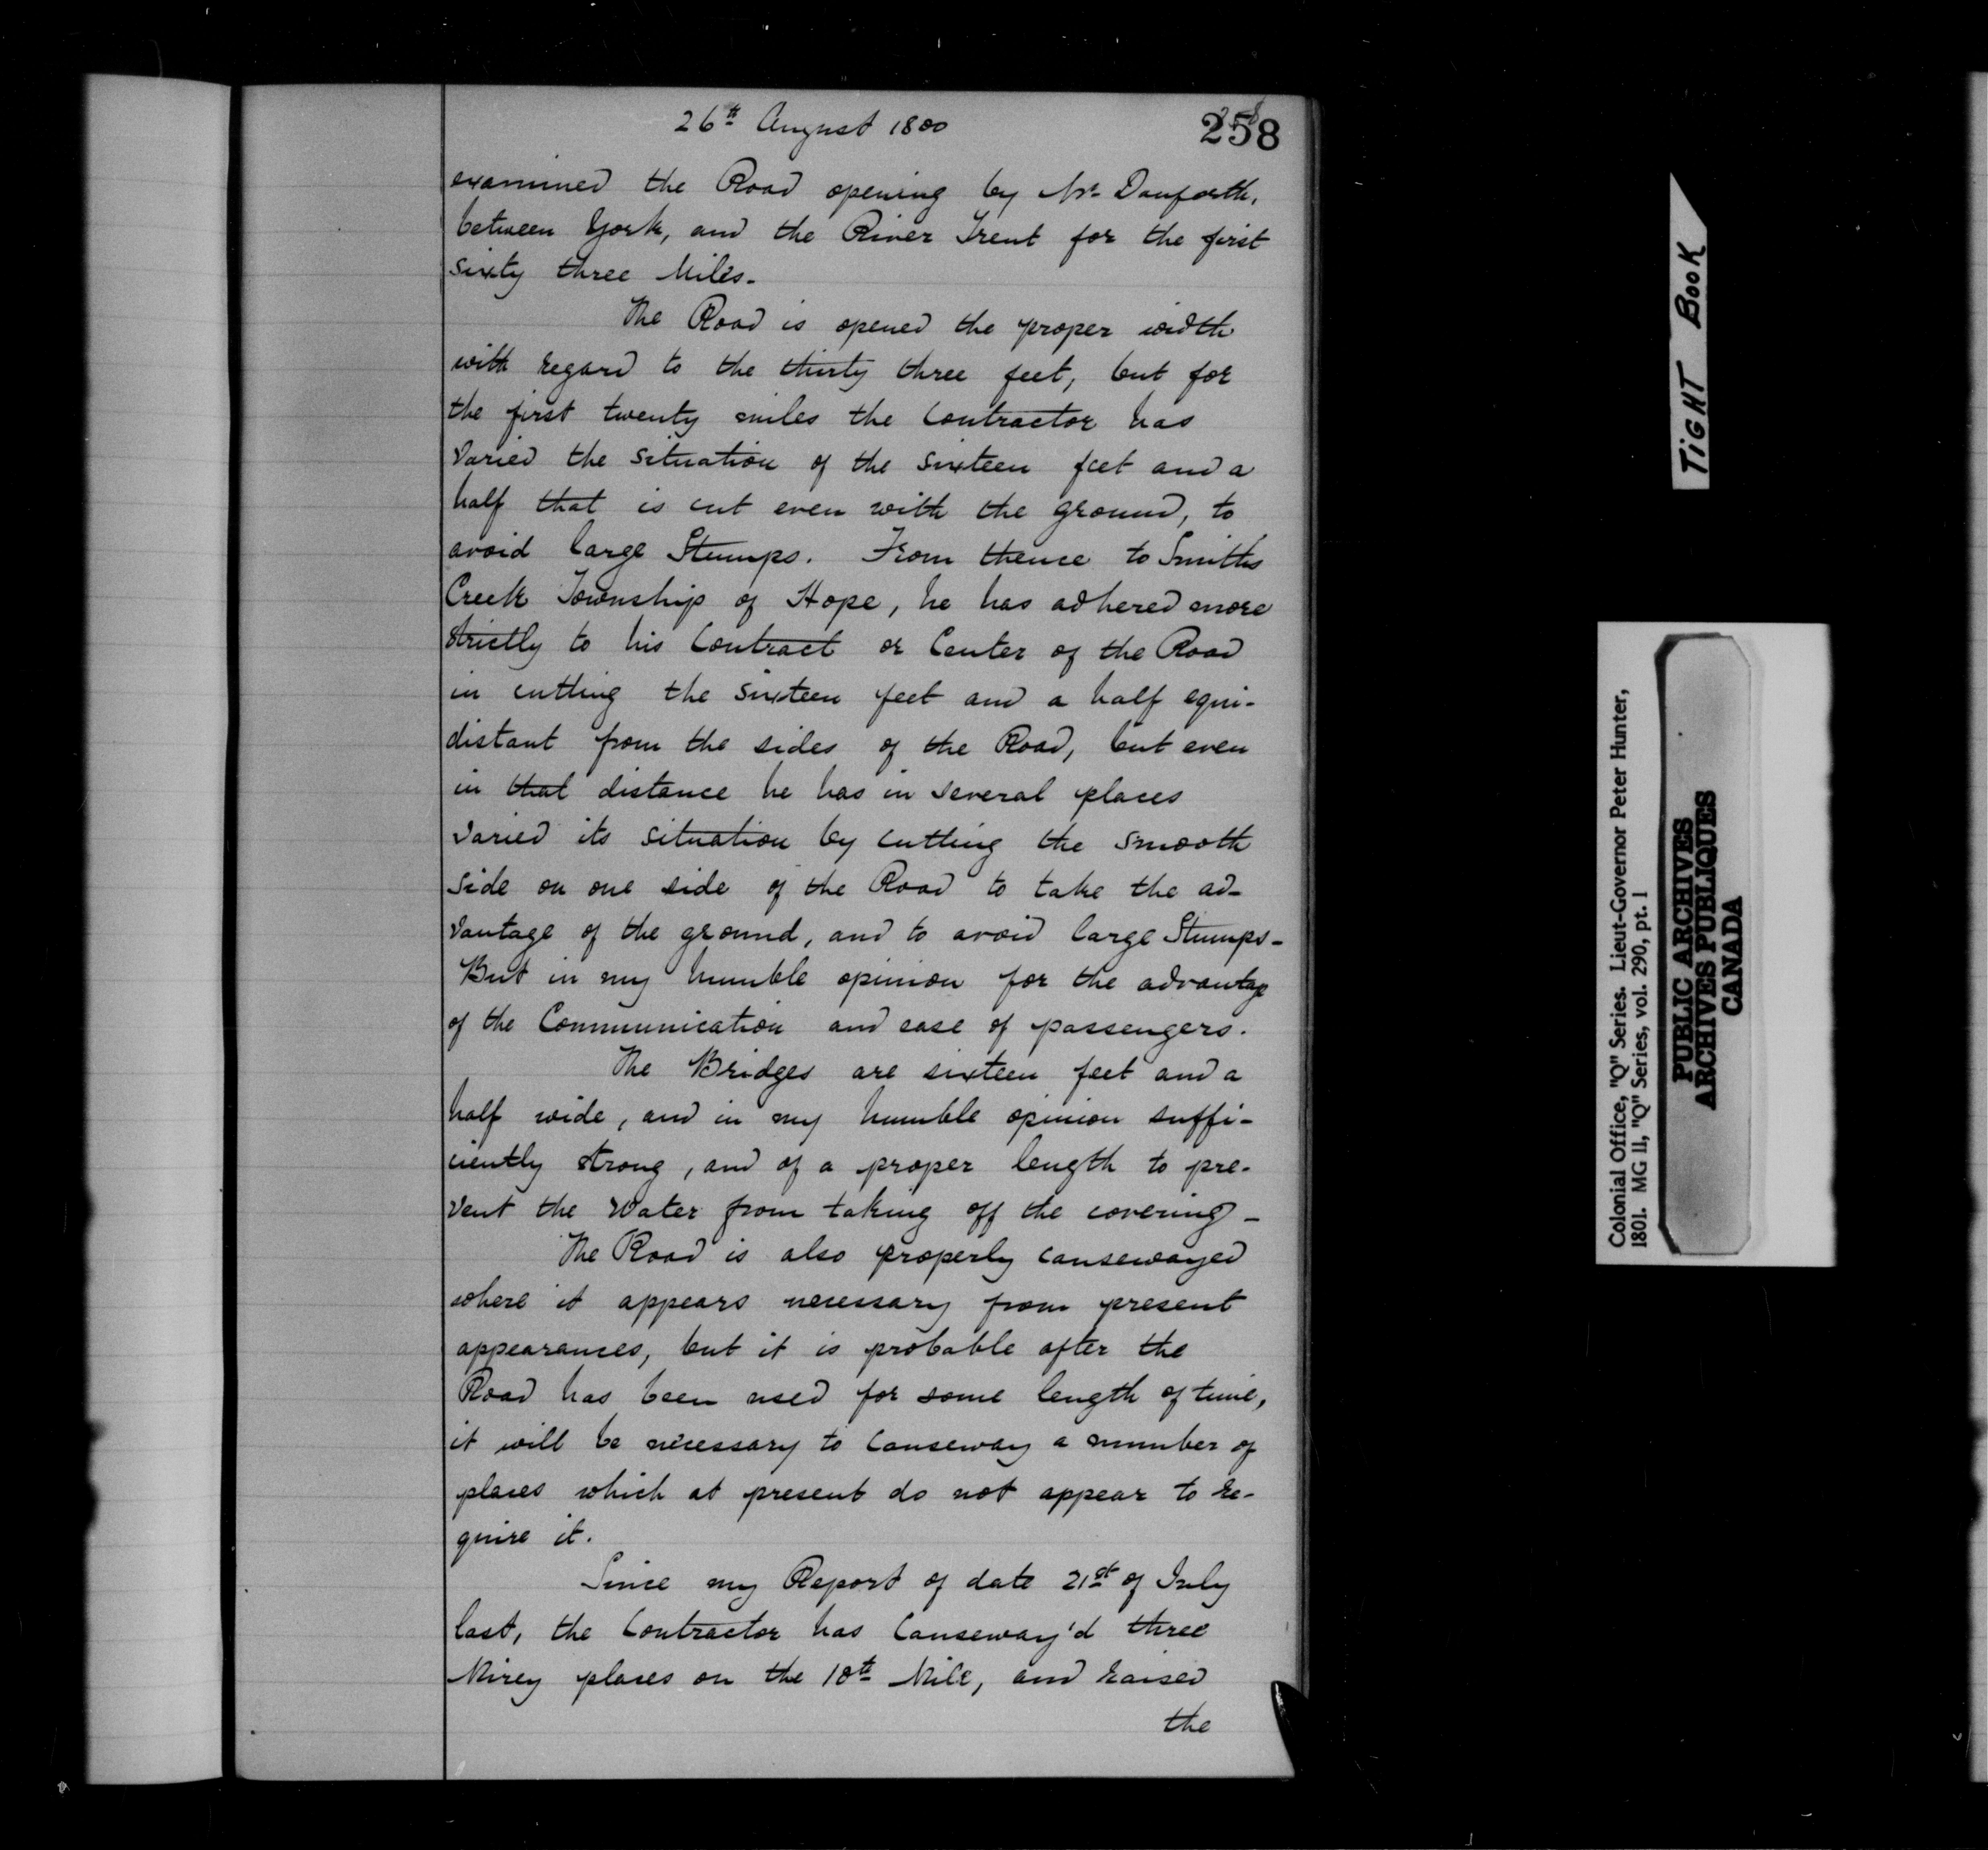 26th August 1800
258
examined the Road opening by Mr. Danforth,
between York, and the River Trent for the first
sixty three Miles.
The Road is opened the proper width
with regard to the thirty three feet, but for
the first twenty miles the Contractor has
Varied the situation of the sixteen feet and a
half that is cut even with the ground, to
avoid large Stumps. From thence to Smiths
Creek Township of Hope, he has adhered more
strictly to his Contract or Center of the Road
in cutting the sixteen feet and a half equi-
distant from the sides of the Road, but even
in that distance he has in several places
Varied its situation by cutting the smooth
side on one side of the Road to take the ad-
vantage of the ground, and to avoid large Stumps-
But in my humble opinion for the advantage
of the Communication and ease of passengers.
The Bridges are sixteen feet and a
half wide, and in my humble opinion suffi-
ciently strong, and of a proper length to pre-
vent the Water from taking off the covering -
The Road is also properly causewayed
where it appears necessary from present
appearances, but it is probable after the
Road has been used for some length of time,
it will be necessary to Causeway a number of
places which at present do not appear to re-
quire it.
Since my Report of date 21st of July
last, the Contractor has Causeway'd three
Mirey places on the 18th Mile, and raised
the
TIGHT BOOK
Colonial Office, "Q" Series. Lieut-Governor Peter Hunter,
1801. MG 11, "Q" Series, vol. 290, pt. 1
PUBLIC ARCHIVES
ARCHIVES PUBLIQUES
CANADA